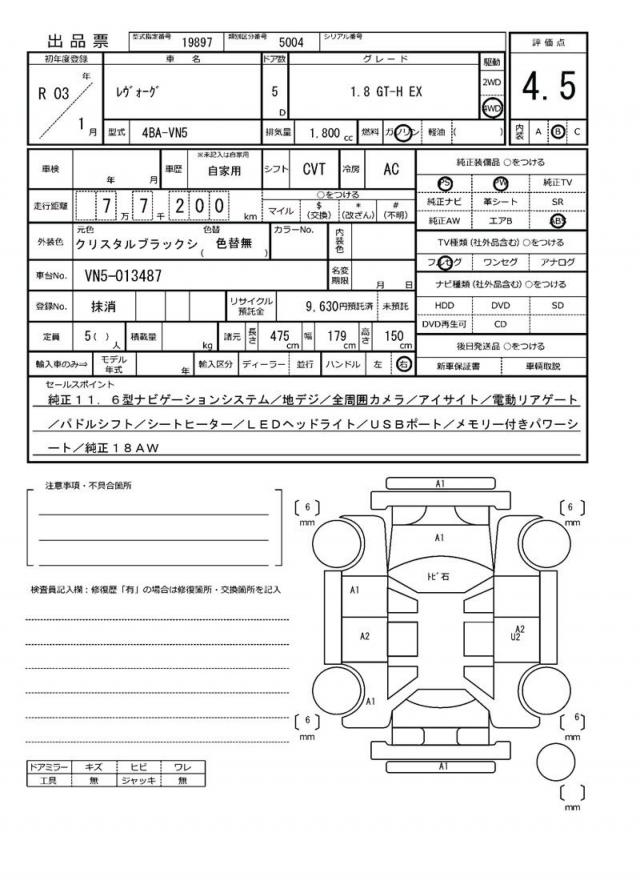 出品票 型式指定番号 19897 類別区分番号 5004 シリアル番号
初年度登録 車名 ドア数 グレード 駆動 評価点
R 03 年 1 月 ﾚヴｫｰｸﾞ 5 D 1.8 GT-H EX 2WD 4WD 4.5
型式 4BA-VN5 排気量 1.800 cc 燃料 ガソリン 軽油 ( ) 内装 A B C
車検 年 月 車歴 ※未記入は自家用 自家用 シフト CVT 冷房 AC 純正装備品 ○をつける
PS PW 純正TV
走行距離 7 7 万 7 千 2 0 0 km ○をつける
マイル $ (交換) * (改ざん) # (不明)
純正ナビ 革シート SR
純正AW エアB ABS
外装色 元色 クリスタルブラックシ 色替 ( 色替無 ) カラーNo. 内装色 TV種類(社外品含む)○をつける
フルセグ ワンセグ アナログ
車台No. VN5-013487 名変期限 月 日 ナビ種類(社外品含む)○をつける
登録No. 抹消 リサイクル預託金 9,630円預託済 未預託 HDD DVD SD
DVD再生可 CD
定員 5( ) 人 積載量 kg 諸元 長さ 475 cm 幅 179 cm 高さ 150 cm 後日発送品 ○をつける
輸入車のみ⇒ モデル年式 年 輸入区分 ディーラー 並行 ハンドル 左 右 新車保証書 車輌取説
セールスポイント
純正11.6型ナビゲーションシステム/地デジ/全周囲カメラ/アイサイト/電動リアゲート
/パドルシフト/シートヒーター/LEDヘッドライト/USBポート/メモリー付きパワーシ
ート/純正18AW
注意事項・不具合箇所
検査員記入欄:修復歴「有」の場合は修復箇所・交換箇所を記入
A1
[ 6 ] mm [ 6 ] mm
A1
ﾄﾋﾞ石
A1
A2 A2
U2
A1
[ 6 ] mm [ 6 ] mm
A1
[ ] mm
ドアミラー キズ ヒビ ワレ
工具 無 ジャッキ 無